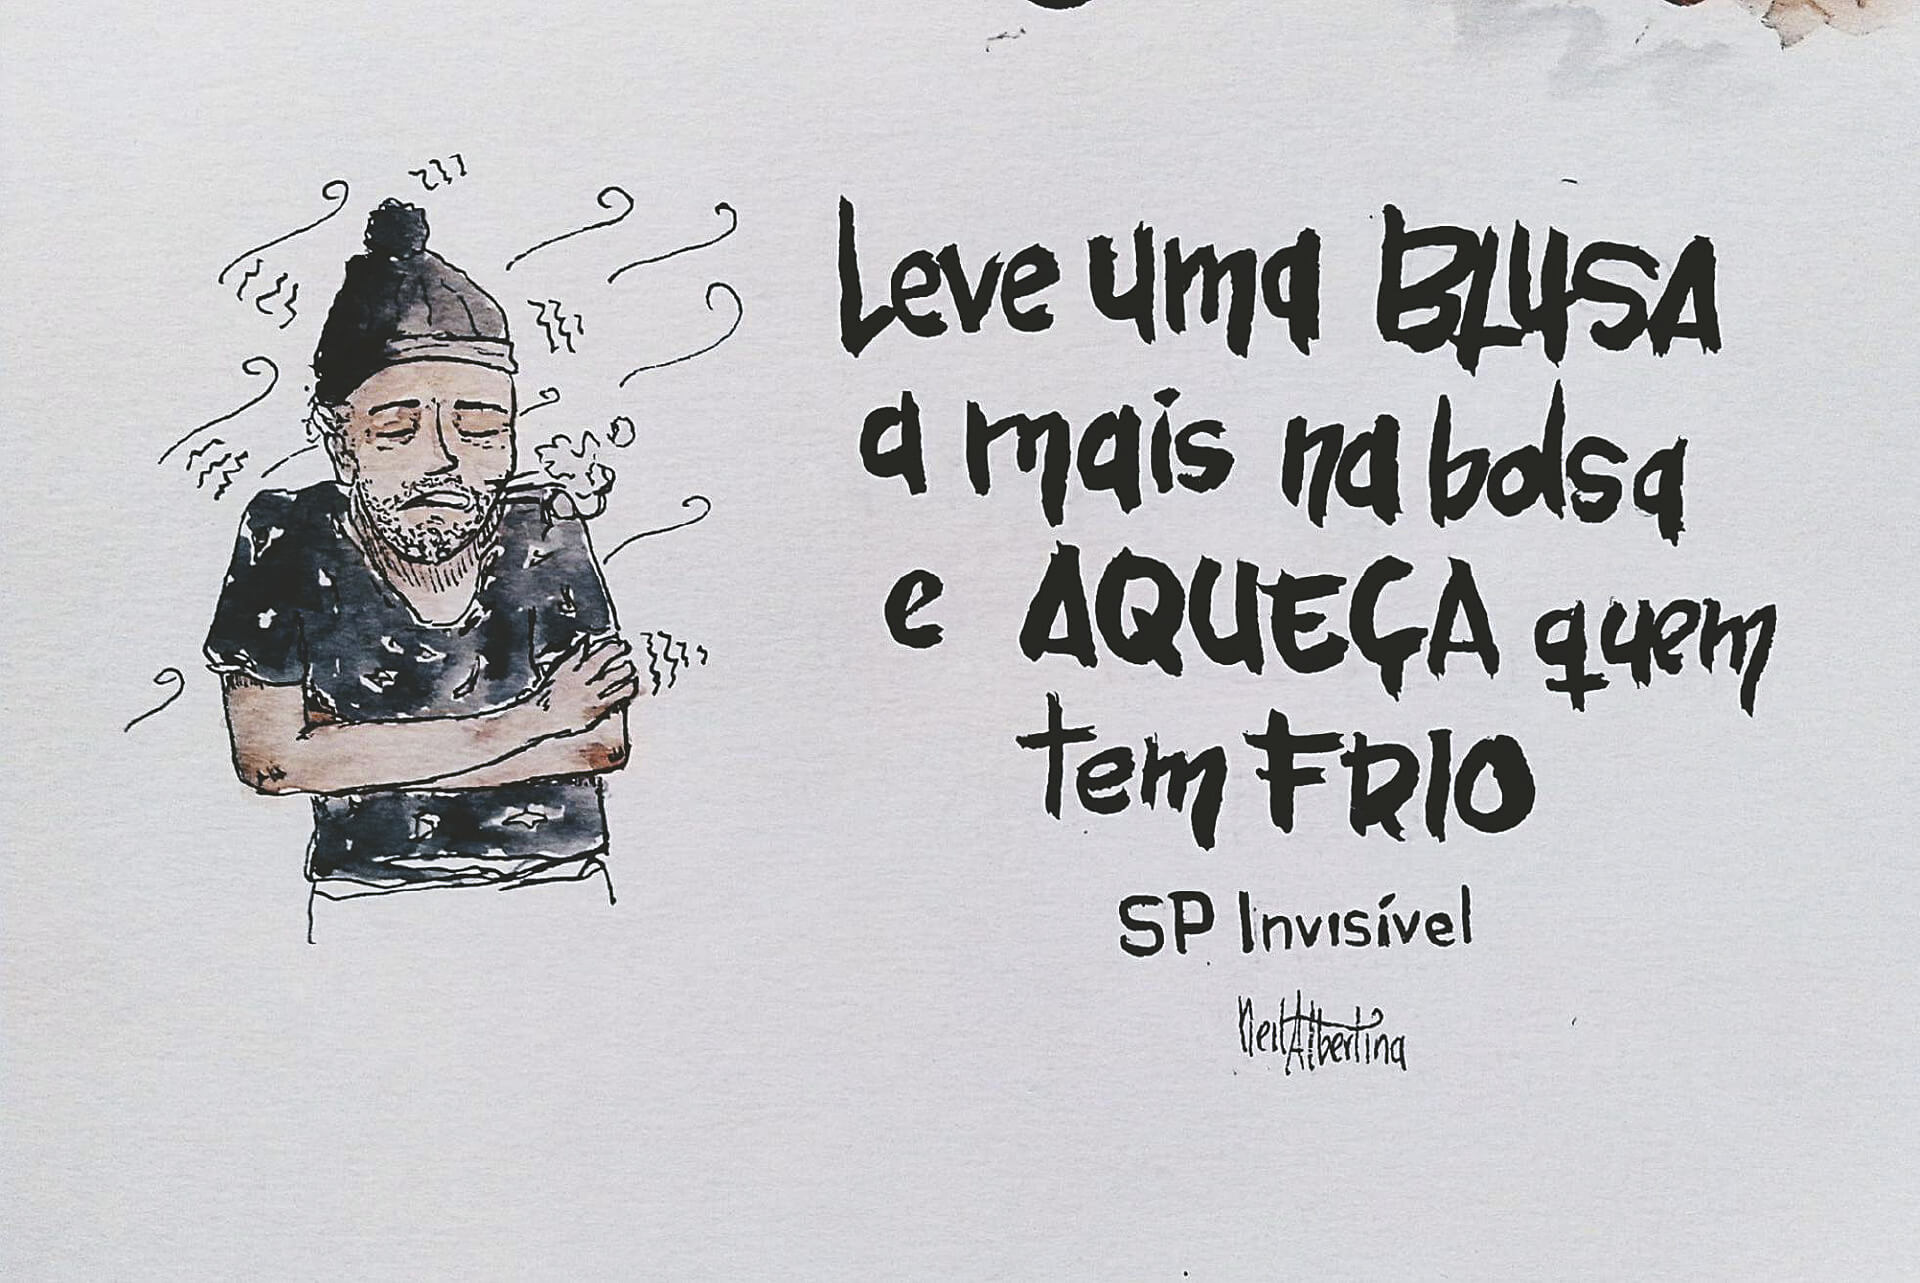 Leve uma BLUSA
a mais na bolsa
e AQUEÇA quem
tem FRIO
SP Invisível
Neil Albertina